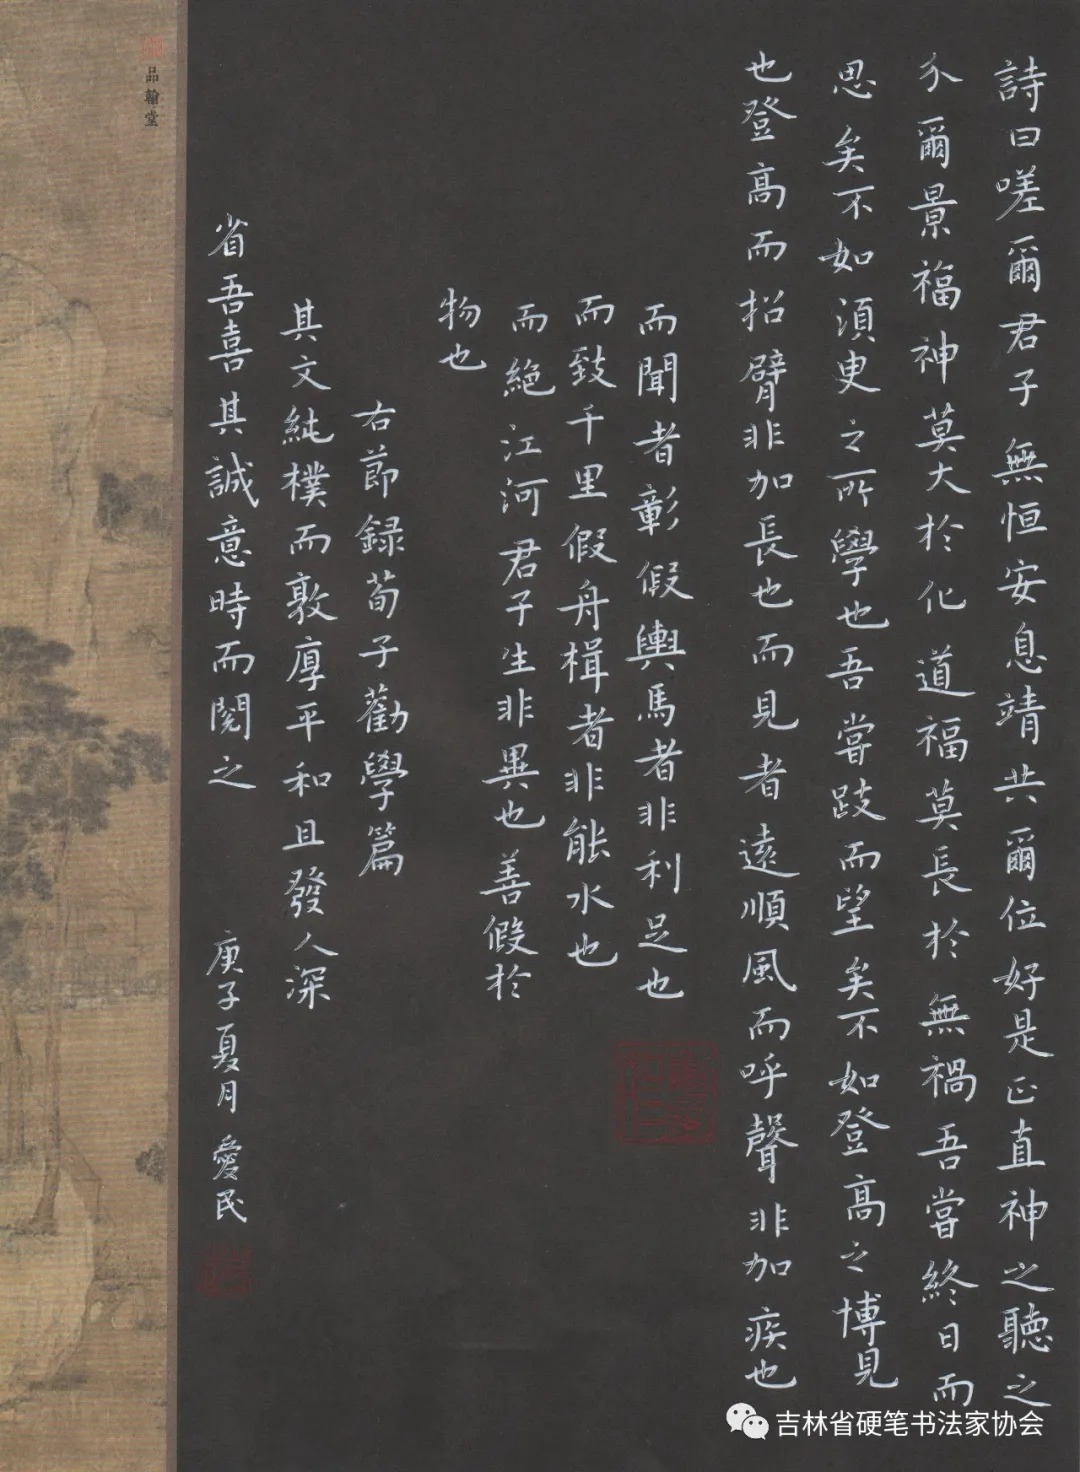 詩曰嗟爾君子無恒安息靖共爾位好是正直神之聽之
介爾景福神莫大於化道福莫長於無禍吾嘗終日而
思矣不如須臾之所學也吾嘗跂而望矣不如登高之博見
也登高而招臂非加長也而見者遠順風而呼聲非加疾也
而聞者彰假輿馬者非利足也
而致千里假舟楫者非能水也
而絕江河君子生非異也善假於
物也
右節録荀子勸學篇
其文純樸而敦厚平和且發人深
省吾喜其誠意時而閱之
庚子夏月 愛民
品翰堂
吉林省硬笔书法家协会